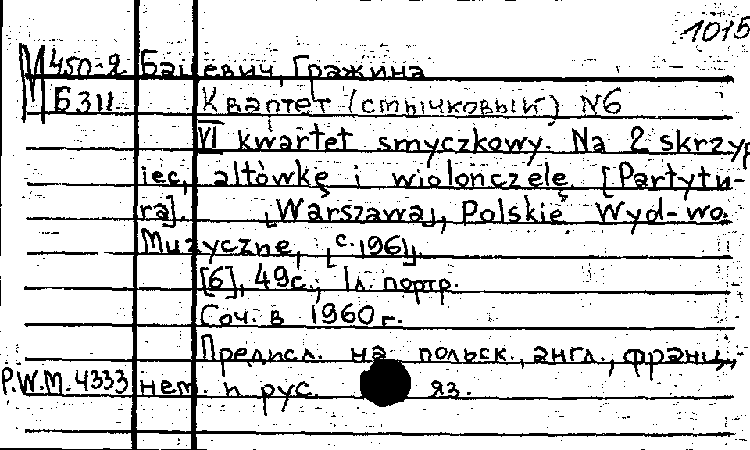 1015
М 450-2 Бацевич, Гражина
Б311 Квартет (смычковый) N6
VI kwartet smyczkowy. Na 2 skrzyp
iec, altówkę i wiolonczelę. [Partytu-
ra]. [Warszawa], Polskie Wyd-wo
Muzyczne, [c.1961].
[6], 49с., 1л. портр.
Соч. в 1960 г.
Предисл. на польск., англ., франц.,
P.W.M. 4333 нем. и рус. яз.